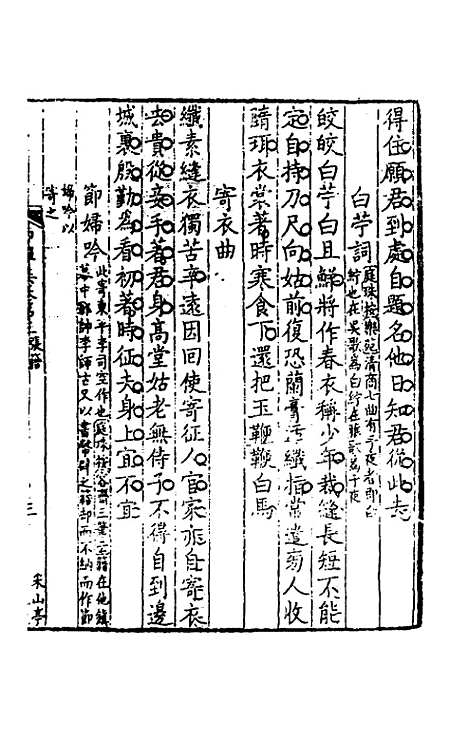 得住願君到處自題名他日知君從此去
白苧詞
庭珠按樂苑清商七曲有子夜者即白
紵也在吳歌為白紵在雅歌為子夜
皎皎白苧白且鮮將作春衣稱少年裁縫長短不能
定自持刀尺向姑前復恐蘭膏污纖指常遣旁人收
墮珥衣裳著時寒食下還把玉鞭鞭白馬
寄衣曲
纖素縫衣獨苦辛遠因回使寄征人官家亦自寄衣
去貴從妾手著君身高堂姑老無侍子不得自到邊
城裏殷勤為看初著時征夫身上宜不宜
節婦吟
此寄東平李司空作也庭珠按容齋三筆云籍在他鎮
幕中鄆帥李師古又以書幣辟之籍却而不納而作節
婦吟以
寄之
三
朱山亭